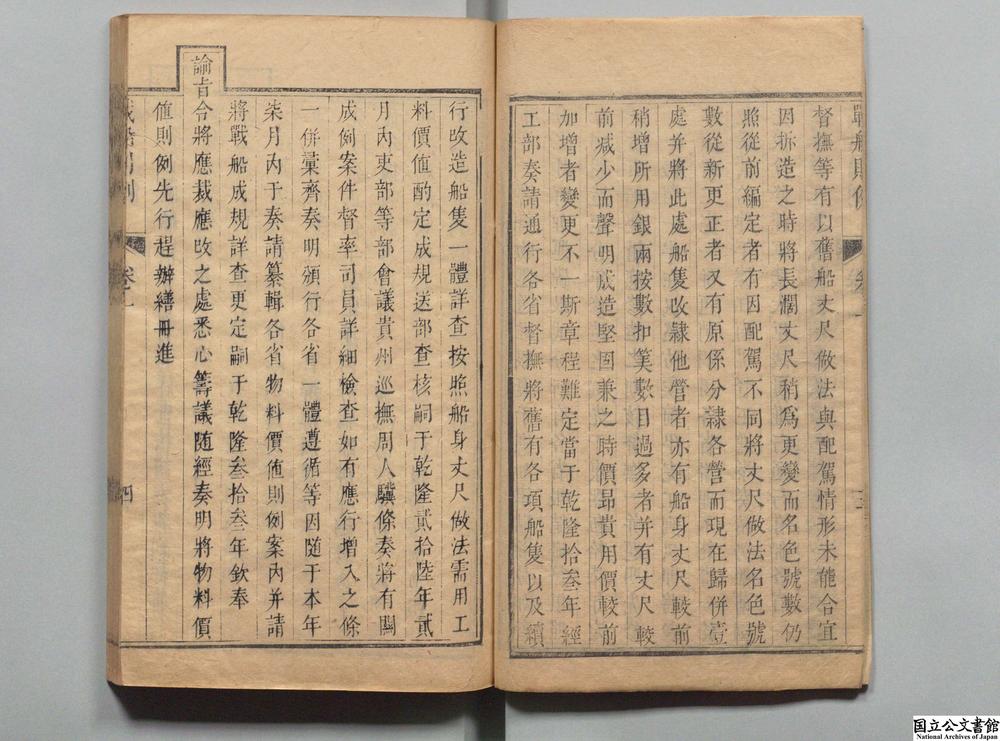 督撫等有以舊船丈尺做法與配駕情形未能合宜
因拆造之時將長濶丈尺稍爲更變而名色號數仍
照從前編定者有因配駕不同將丈尺做法名色號
數從新更正者又有原係分隷各營而現在歸併壹
處并將此處船隻改隷他營者亦有船身丈尺較前
稍增所用銀兩按數扣筭數目過多者并有丈尺較
前減少而聲明成造堅固兼之時價昻貴用價較前
加增者變更不一斯章程難定當于乾隆拾叁年經
工部奏請通行各省督撫將舊有各項船隻以及續
行改造船隻一體詳查按照船身丈尺做法需用工
料價値酌定成規送部查核嗣于乾隆貳拾陸年貳
月內吏部等部會議貴州巡撫周人驥條奏將有關
成例案件督率司員詳細檢查如有應行增入之條
一併彙齊奏明頒行各省一體遵循等因隨于本年
柒月內于奏請纂輯各省物料價値則例案內并請
將戰船成規詳查更定嗣于乾隆叁拾叁年欽奉
諭旨令將應裁應改之處悉心籌議随經奏明將物料價
値則例先行趕辦繕冊進
四
国立公文書館
National Archives of Japan